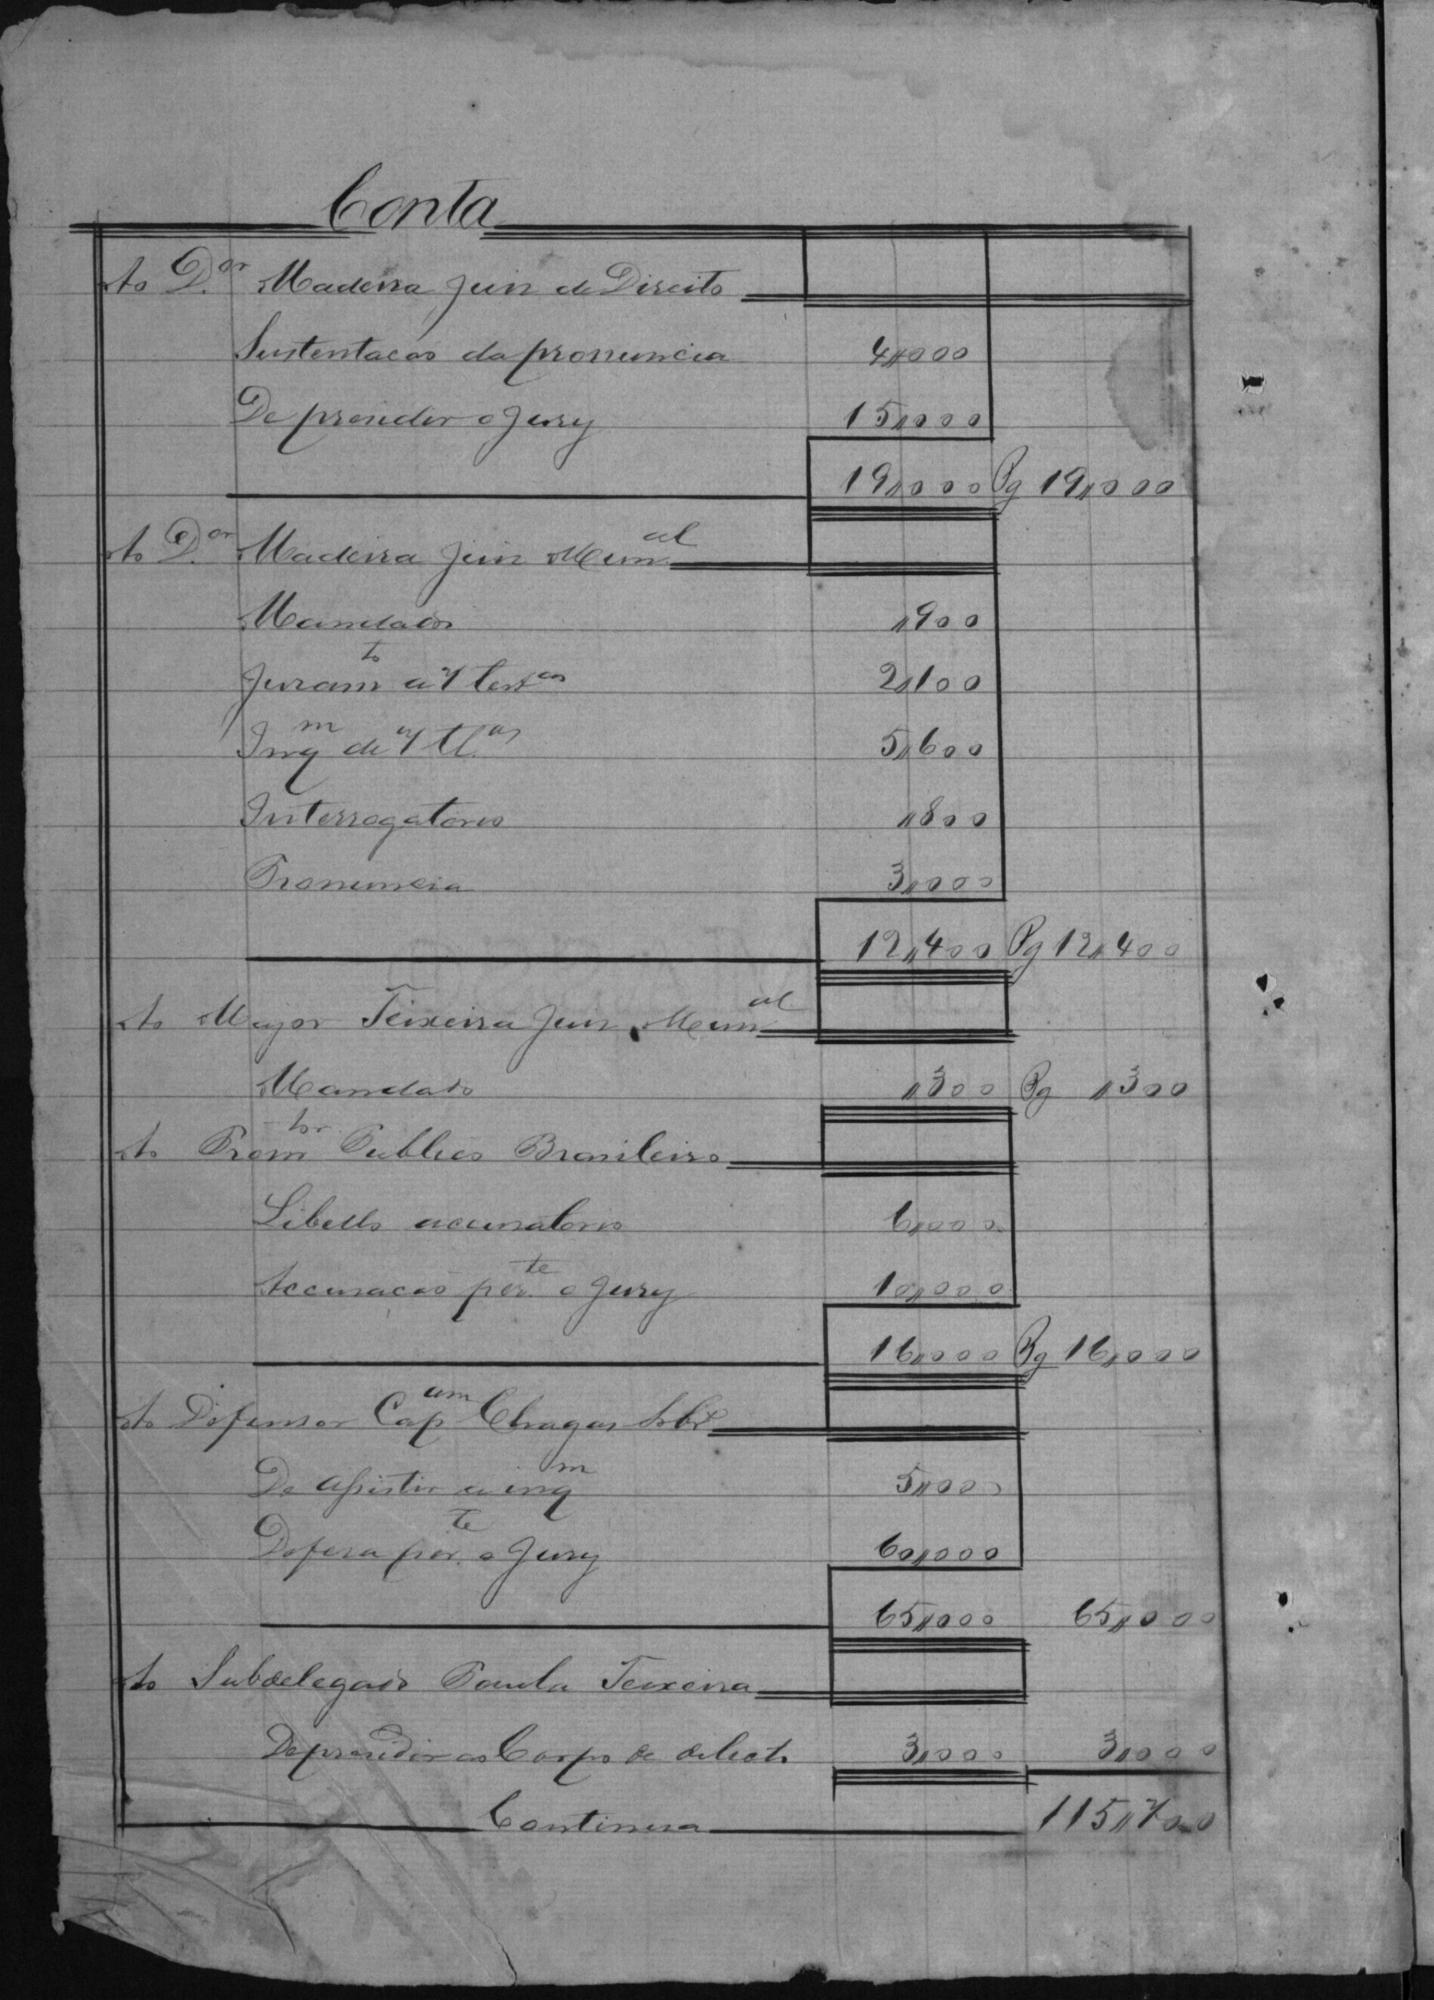 Conta
Ao D.or Madeira Juiz de Direito
Sustentacão da pronuncia 4,,000
De presidir o Jury 15,,000
19,,000 Pg 19,,000
Ao D.or Madeira Juiz Mun.al
Mandados ,,900
Juram.to a 7 test.as 2,,100
Inq.m de 7 tt.as 5,,600
Interrogatorio ,,800
Pronuncia 3,,000
12,,400 Pg 12,,400
Ao Major Teixeira Juiz Mun.al
Mandado ,,300 Pg ,,300
Ao Prom.tor Publico Brasileiro
Libello accusatorio 6,,000
Accusacão per.te o Jury 10,,000
16,,000 Pg 16,,000
Ao Defensor Cap.am Chagas
De assistir a inq.m 5,,000
Defesa per.te o Jury 60,,000
65,,000 65,,000
Ao Subdelegado Paula Teixeira
De presidir ao Corpo de delicto 3,,000 3,,000
Continua 115,,700